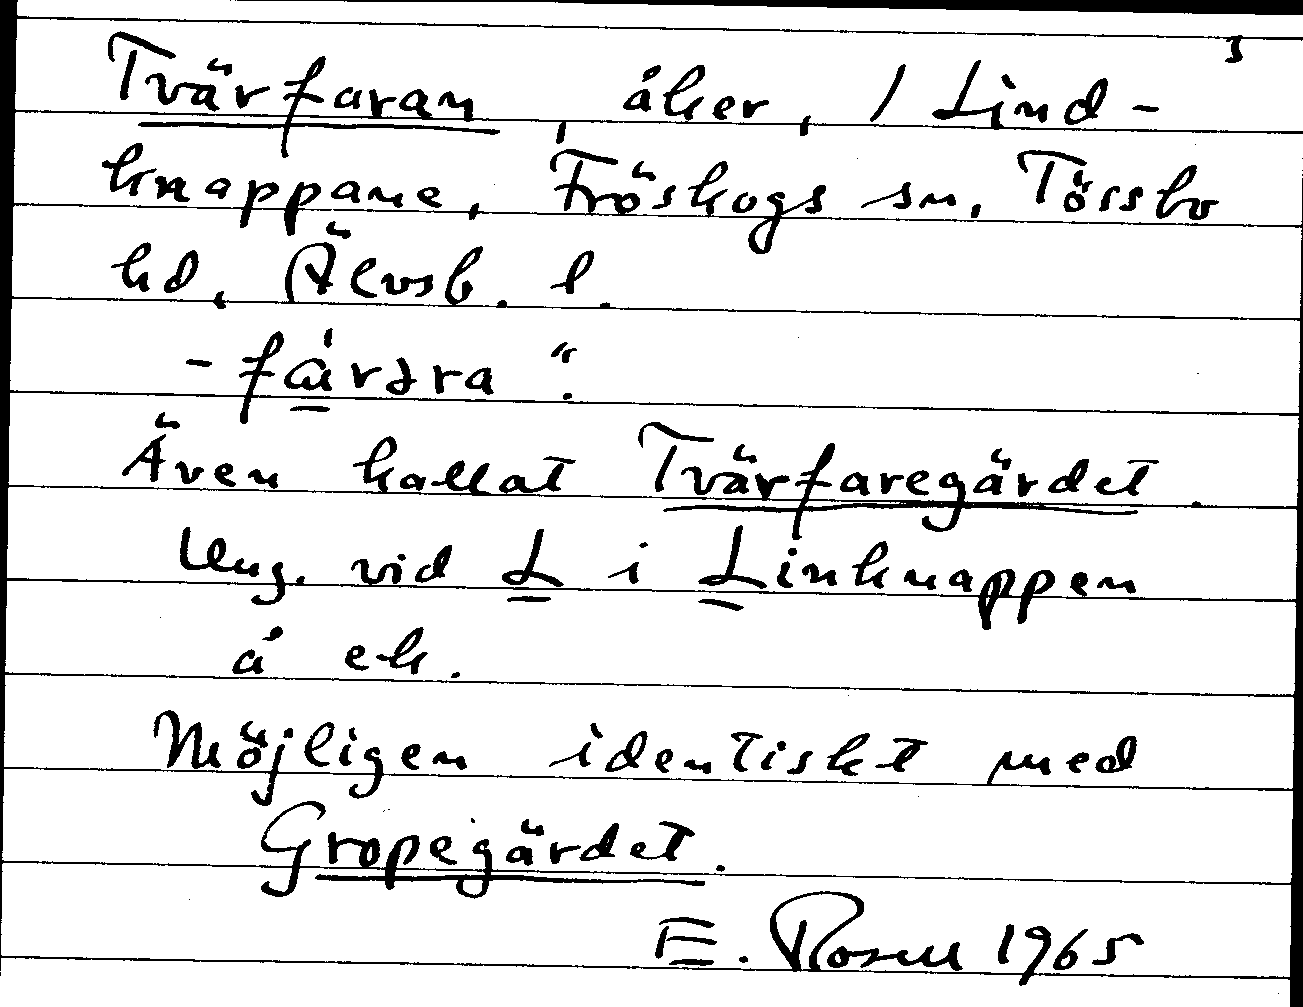 Tvärfaran, åker, / Lind-
knappane, Fröskogs sn, Tössbo
hd, Älvsb. l.
Även kallat Tvärfaregärdet.
Ung. vid L i Linknappen
å ek.
Möjligen identiskt med
Gropegärdet.
E. Rosell 1965